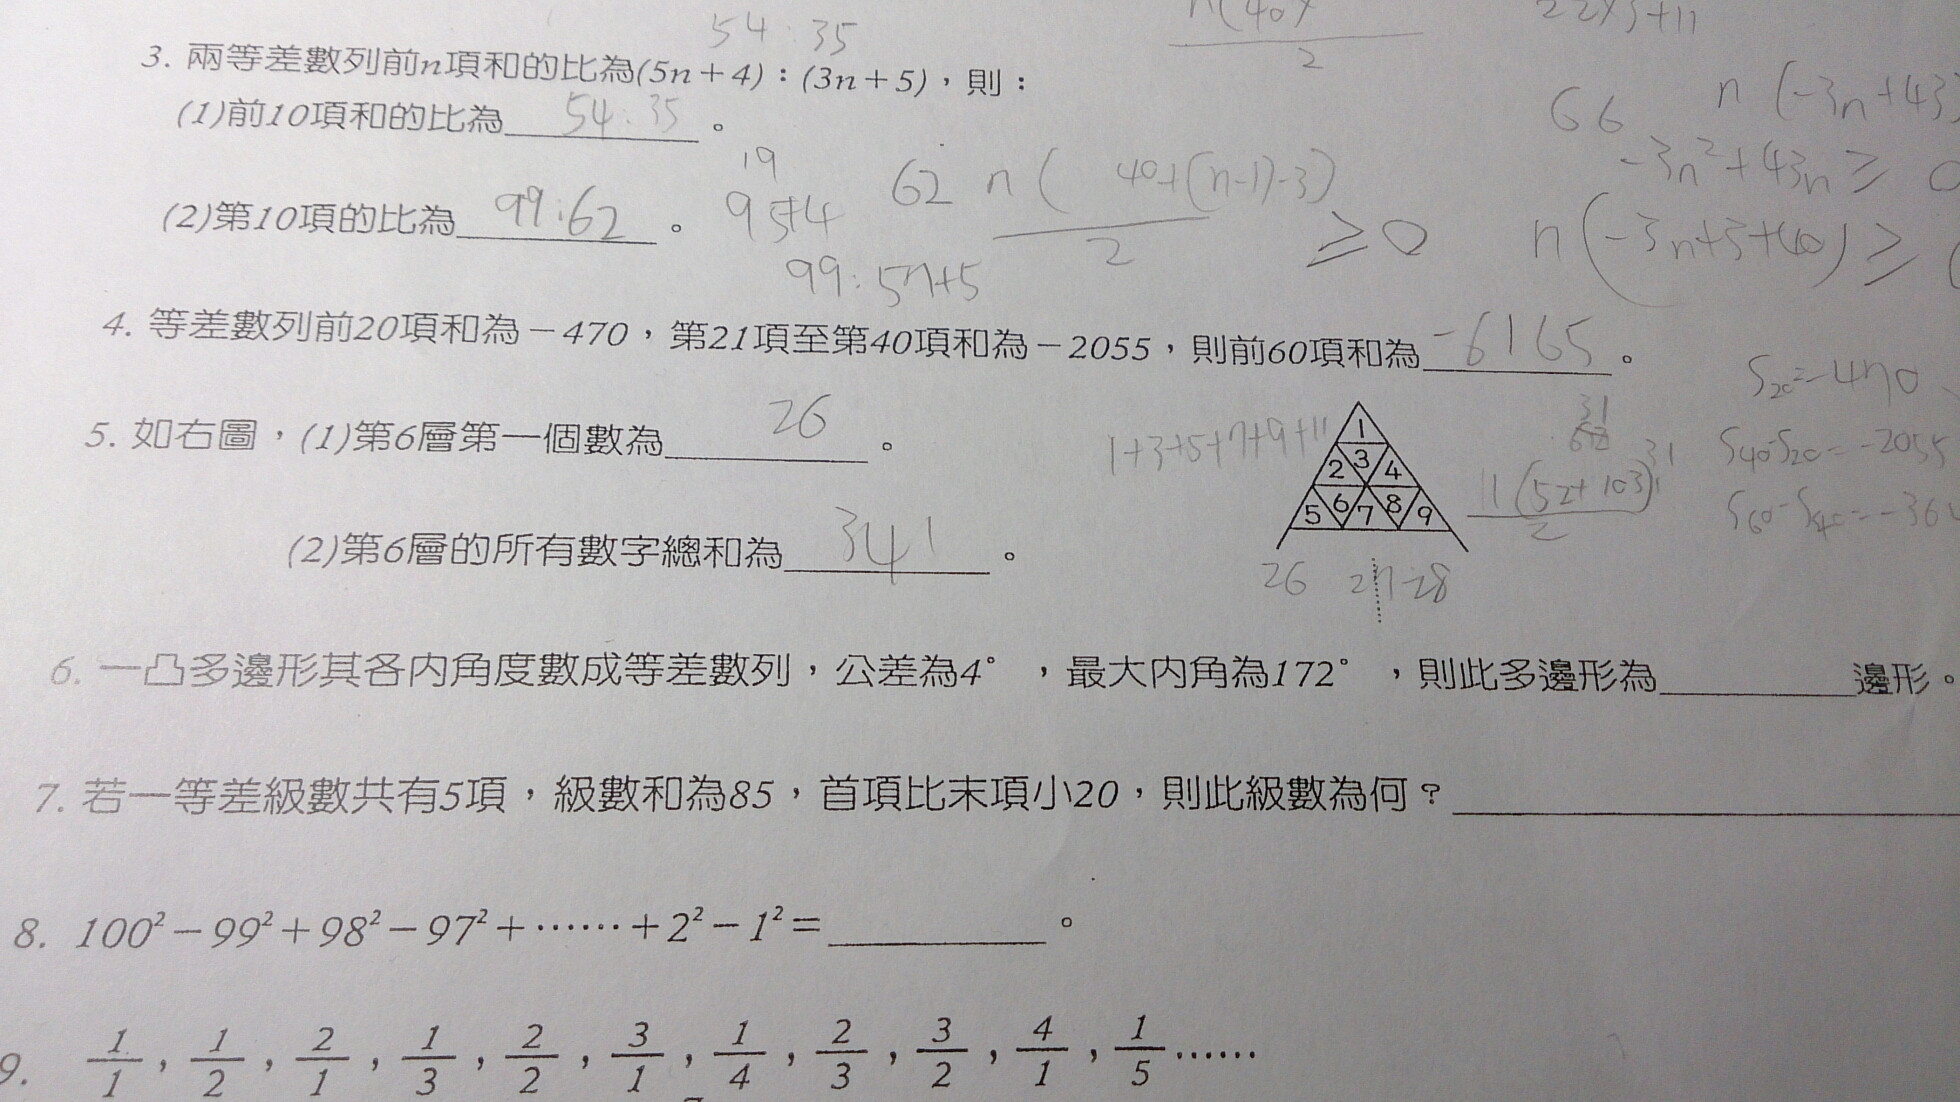 54:35
n(40
2
3. 兩等差數列前n項和的比為(5n+4):(3n+5),則:
(1)前10項和的比為 54:35 。
19
66
n(-3n+43)
-3n²+43n≥0
(2)第10項的比為 99:62 。
95+4
62
n(40+(n-1)-3)
2
≥0
n(-3n+3+40)≥
99:57+5
4. 等差數列前20項和為-470,第21項至第40項和為-2055,則前60項和為 -6165 。
S20=-470
S40-S20=-2055
5. 如右圖,(1)第6層第一個數為 26 。
1+3+5+7+9+11
1
2 3 4
5 6 7 8 9
31
62
31
11(52+10
2
(2)第6層的所有數字總和為 341 。
26 27 28
6. 一凸多邊形其各內角度數成等差數列,公差為4°,最大內角為172°,則此多邊形為 邊形。
7. 若一等差級數共有5項,級數和為85,首項比末項小20,則此級數為何?
8. 100²-99²+98²-97²+⋯⋯+2²-1²= 。
9. 1/1, 1/2, 2/1, 1/3, 2/2, 3/1, 1/4, 2/3, 3/2, 4/1, 1/5⋯⋯